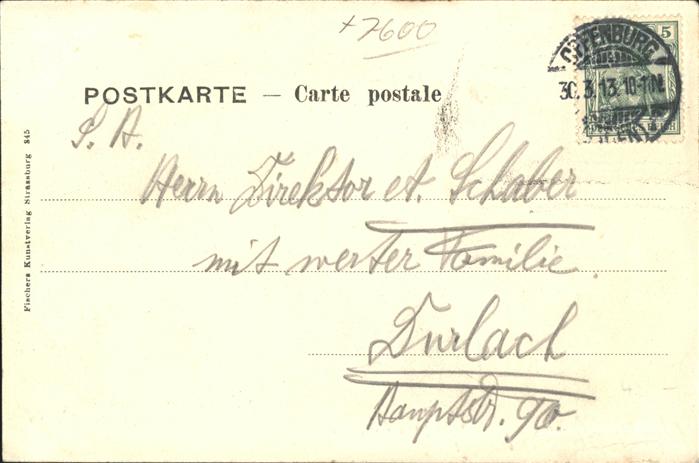 +7600
5
OFFENBURG
30.3.13.10-11V.
POSTKARTE — Carte postale
S. H.
Herrn Direktor A. Schaber
mit werter Familie.
Durlach
Hauptstr. 90.
Fischers Kunstverlag Strassburg 845